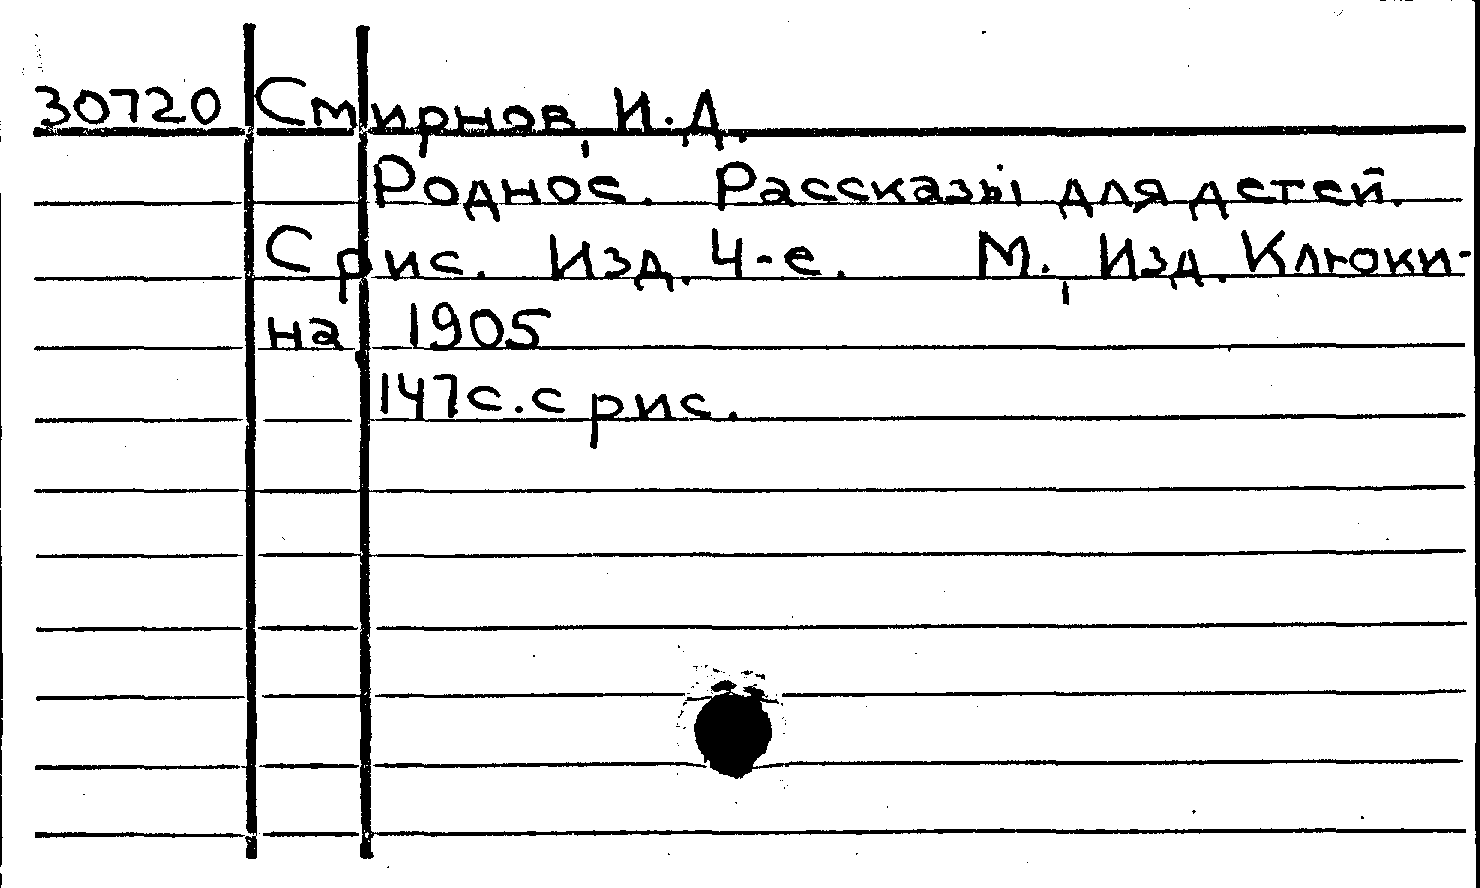 30720 Смирнов, И.Д.
Родное. Рассказы для детей.
С рис. Изд. 4-е. М., Изд. Клюки-
на, 1905
147с. с рис.